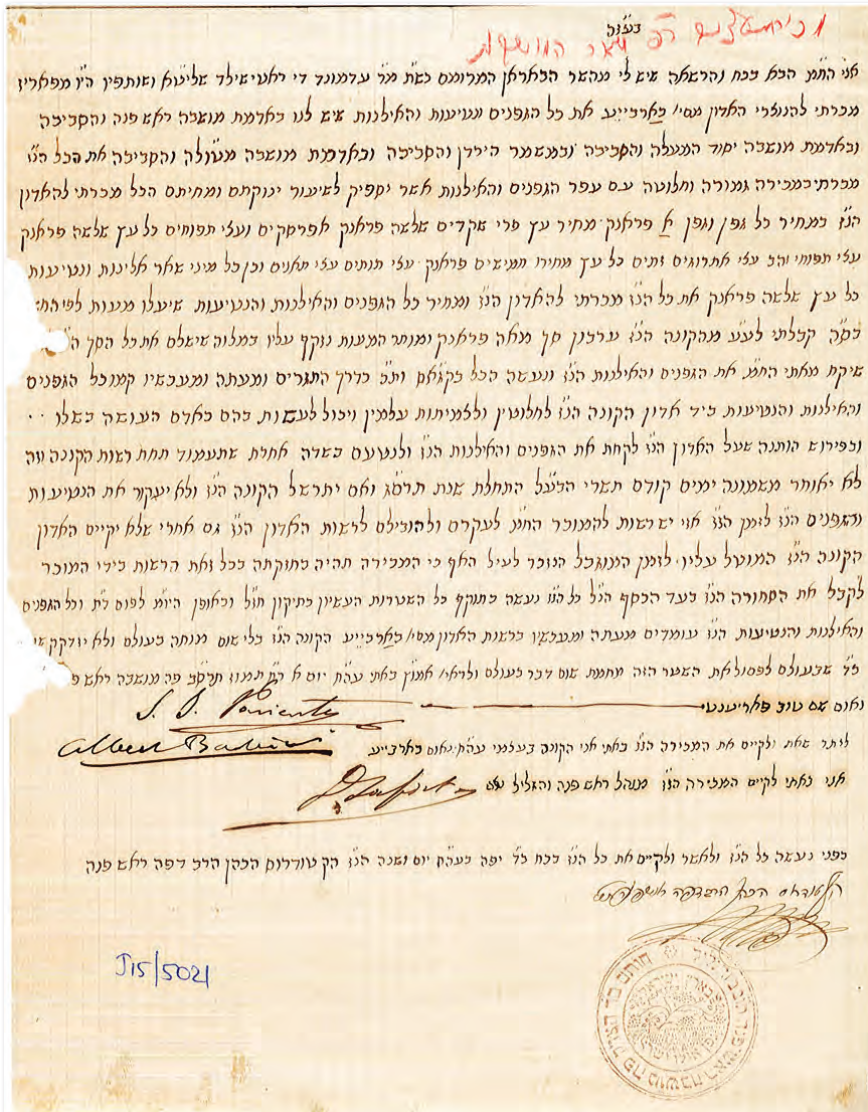 בע״ה
אני הח״מ הבא בכח והרשאה שיש לי מהשר הבאראן המרומם כש״ת מו״ר עדמונד די ראטישילד שליט״א ושותפיו הי״ו מפאריז
מכרתי להנוצרי האדון מסי׳ בארבייע את כל הגפנים ונטיעות והאילנות שיש לנו באדמת מושבה ראש פנה והסביבה
ובאדמת מושבה יסוד המעלה והסביבה ובמשמר הירדן והסביבה ובאדמת מושבה מטולה והסביבה את הכל הנ״ז
מכרתי במכירה גמורה וחלוטה עם עפר הגפנים והאילנות אשר יספיק לשיעור ינוקתם ומחיתם הכל מכרתי להאדון
הנ״ז במחיר כל גפן וגפן א פראנק מחיר עץ פרי שקדים שלשה פראנק אפרסקים ועצי תפוחים כל עץ שלשה פראנק
עצי תפוחי זהב עצי אתרוגים זתים כל עץ מחירו חמישים פראנק עצי תותים עצי תאנים וכן כל מיני שאר אלינות ונטיעות
כל עץ שלשה פראנק את כל הנ״ז מכרתי להאדון הנ״ז ומחיר כל הגפנים והאילנות והנטיעות שיעלו מעות לפי
קבלתי לע״ע מהקונה הנ״ז ערבון סך מאה פראנק ומותר המעות נזקף עליו במלוה שישלם את כל הסך
שיקח מאתי הח״מ את הגפנים והאילנות הנ״ז ונעשה הכל בקגא״ס ות״כ כדרך התגרים ומעתה ומעכשיו קמו כל הגפנים
והאילנות והנטיעות ביד אדון הקונה הנ״ז לחלוטין ולצמיתות עלמין ויכול לעשות בהם כאדם העושה בשלו
ובפירוש הותנה שעל האדון הנ״ז לקחת את הגפנים והאילנות הנ״ז ולנטעם בשדה אחרת שתעמוד תחת רשות הקונה וזה
לא יאוחר משמונה ימים קודם תשרי הבע״ל התחלת שנת תרס״ג ואם יתרשל הקונה הנ״ז ולא יעקור את הנטיעות
והגפנים הנ״ז לזמן הנ״ז אזי יש רשות להמוכר הח״מ לעקרם ולהובילם לרשות האדון הנ״ז גם אחרי שלא יקיים האדון
הקונה הנ״ז המוטל עליו לזמן המוגבל הנזכר לעיל האף כי המכירה תהיה בחזקתה בכל זאת הרשות בידי המוכר
לקבל את הסחורה הנ״ז בעד הכסף הנ״ל כל הנ״ז נעשה בתוקף כל השטרות העשוין כתיקון חז״ל ובאופן היותר לפום ד״ת וכל הגפנים
והאילנות והנטיעות הנ״ז עומדים מעתה ומעכשיו ברשות האדון מסי׳ בארבייע הקונה הנ״ז בלי שום מוחה בעולם ולא יזדקק שום
ב״ד שבעולם לפסול את השטר הזה מחמת שום דבר בעולם ולראי׳ אמו״ץ באתי עה״ח יום א תמוז תרס״ב פה מושבה ראש
נאום שם טוב פאריענטי S. J. Pariente
ליתר שאת ולקיים את המכירה הנ״ז באתי אני הקונה בעצמי עה״ח נאום בארבייע Albert
אני באתי לקיים המכירה הנ״ז מנהל ראש פנה והגליל
בפני נעשה כל הנ״ז ולאשר ולקיים את כל הנ״ז בכח ב״ד יפה בעה״ח יום ושנה הנ״ז הק׳ טודרוס הכהן הרב דפה ראש פנה
J15/5021